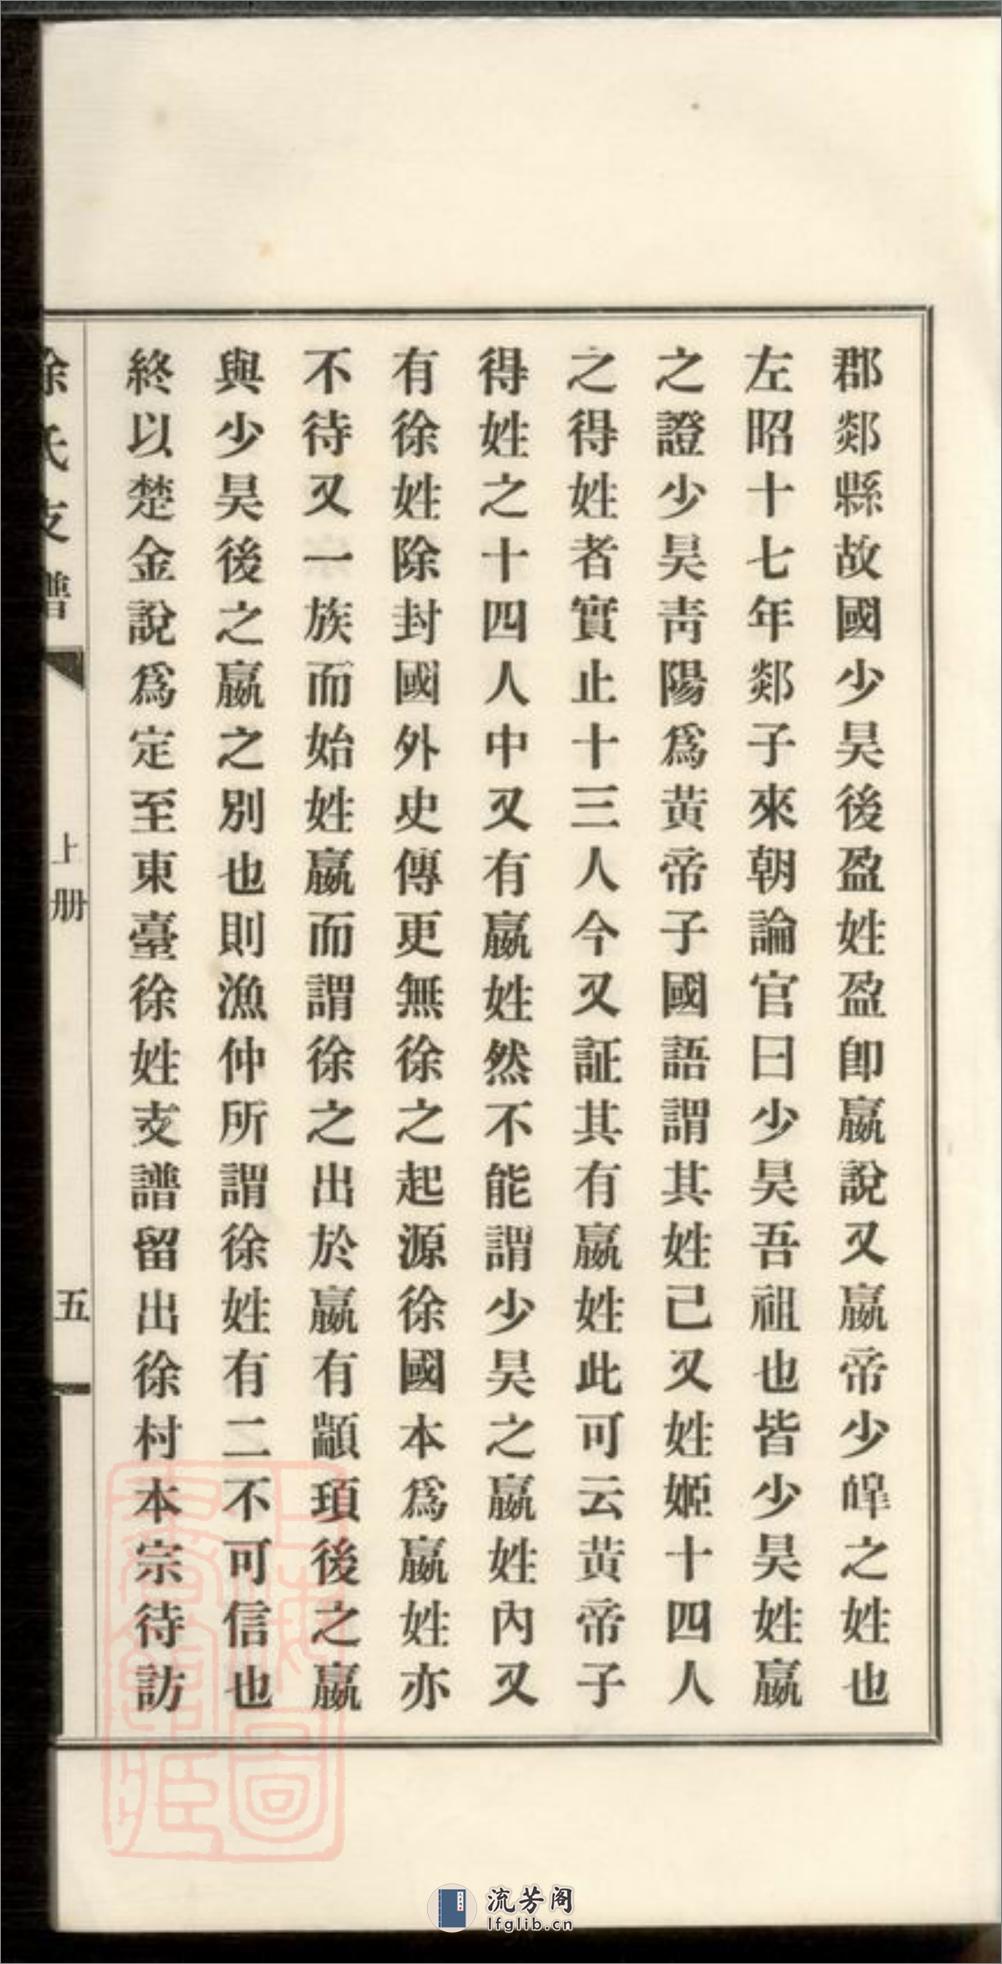 郡郯縣故國少昊後盈姓盈卽嬴說又嬴帝少皞之姓也
左昭十七年郯子來朝論官曰少昊吾祖也皆少昊姓嬴
之證少昊靑陽爲黃帝子國語謂其姓己又姓姬十四人
之得姓者實止十三人今又証其有嬴姓此可云黃帝子
得姓之十四人中又有嬴姓然不能謂少昊之嬴姓內又
有徐姓除封國外史傳更無徐之起源徐國本爲嬴姓亦
不待又一族而始姓嬴而謂徐之出於嬴有顓頊後之嬴
與少昊後之嬴之別也則漁仲所謂徐姓有二不可信也
終以楚金說爲定至東臺徐姓支譜留出徐村本宗待訪
徐氏支譜
上册
五
上海圖書館藏
流芳阁
lfglib.cn